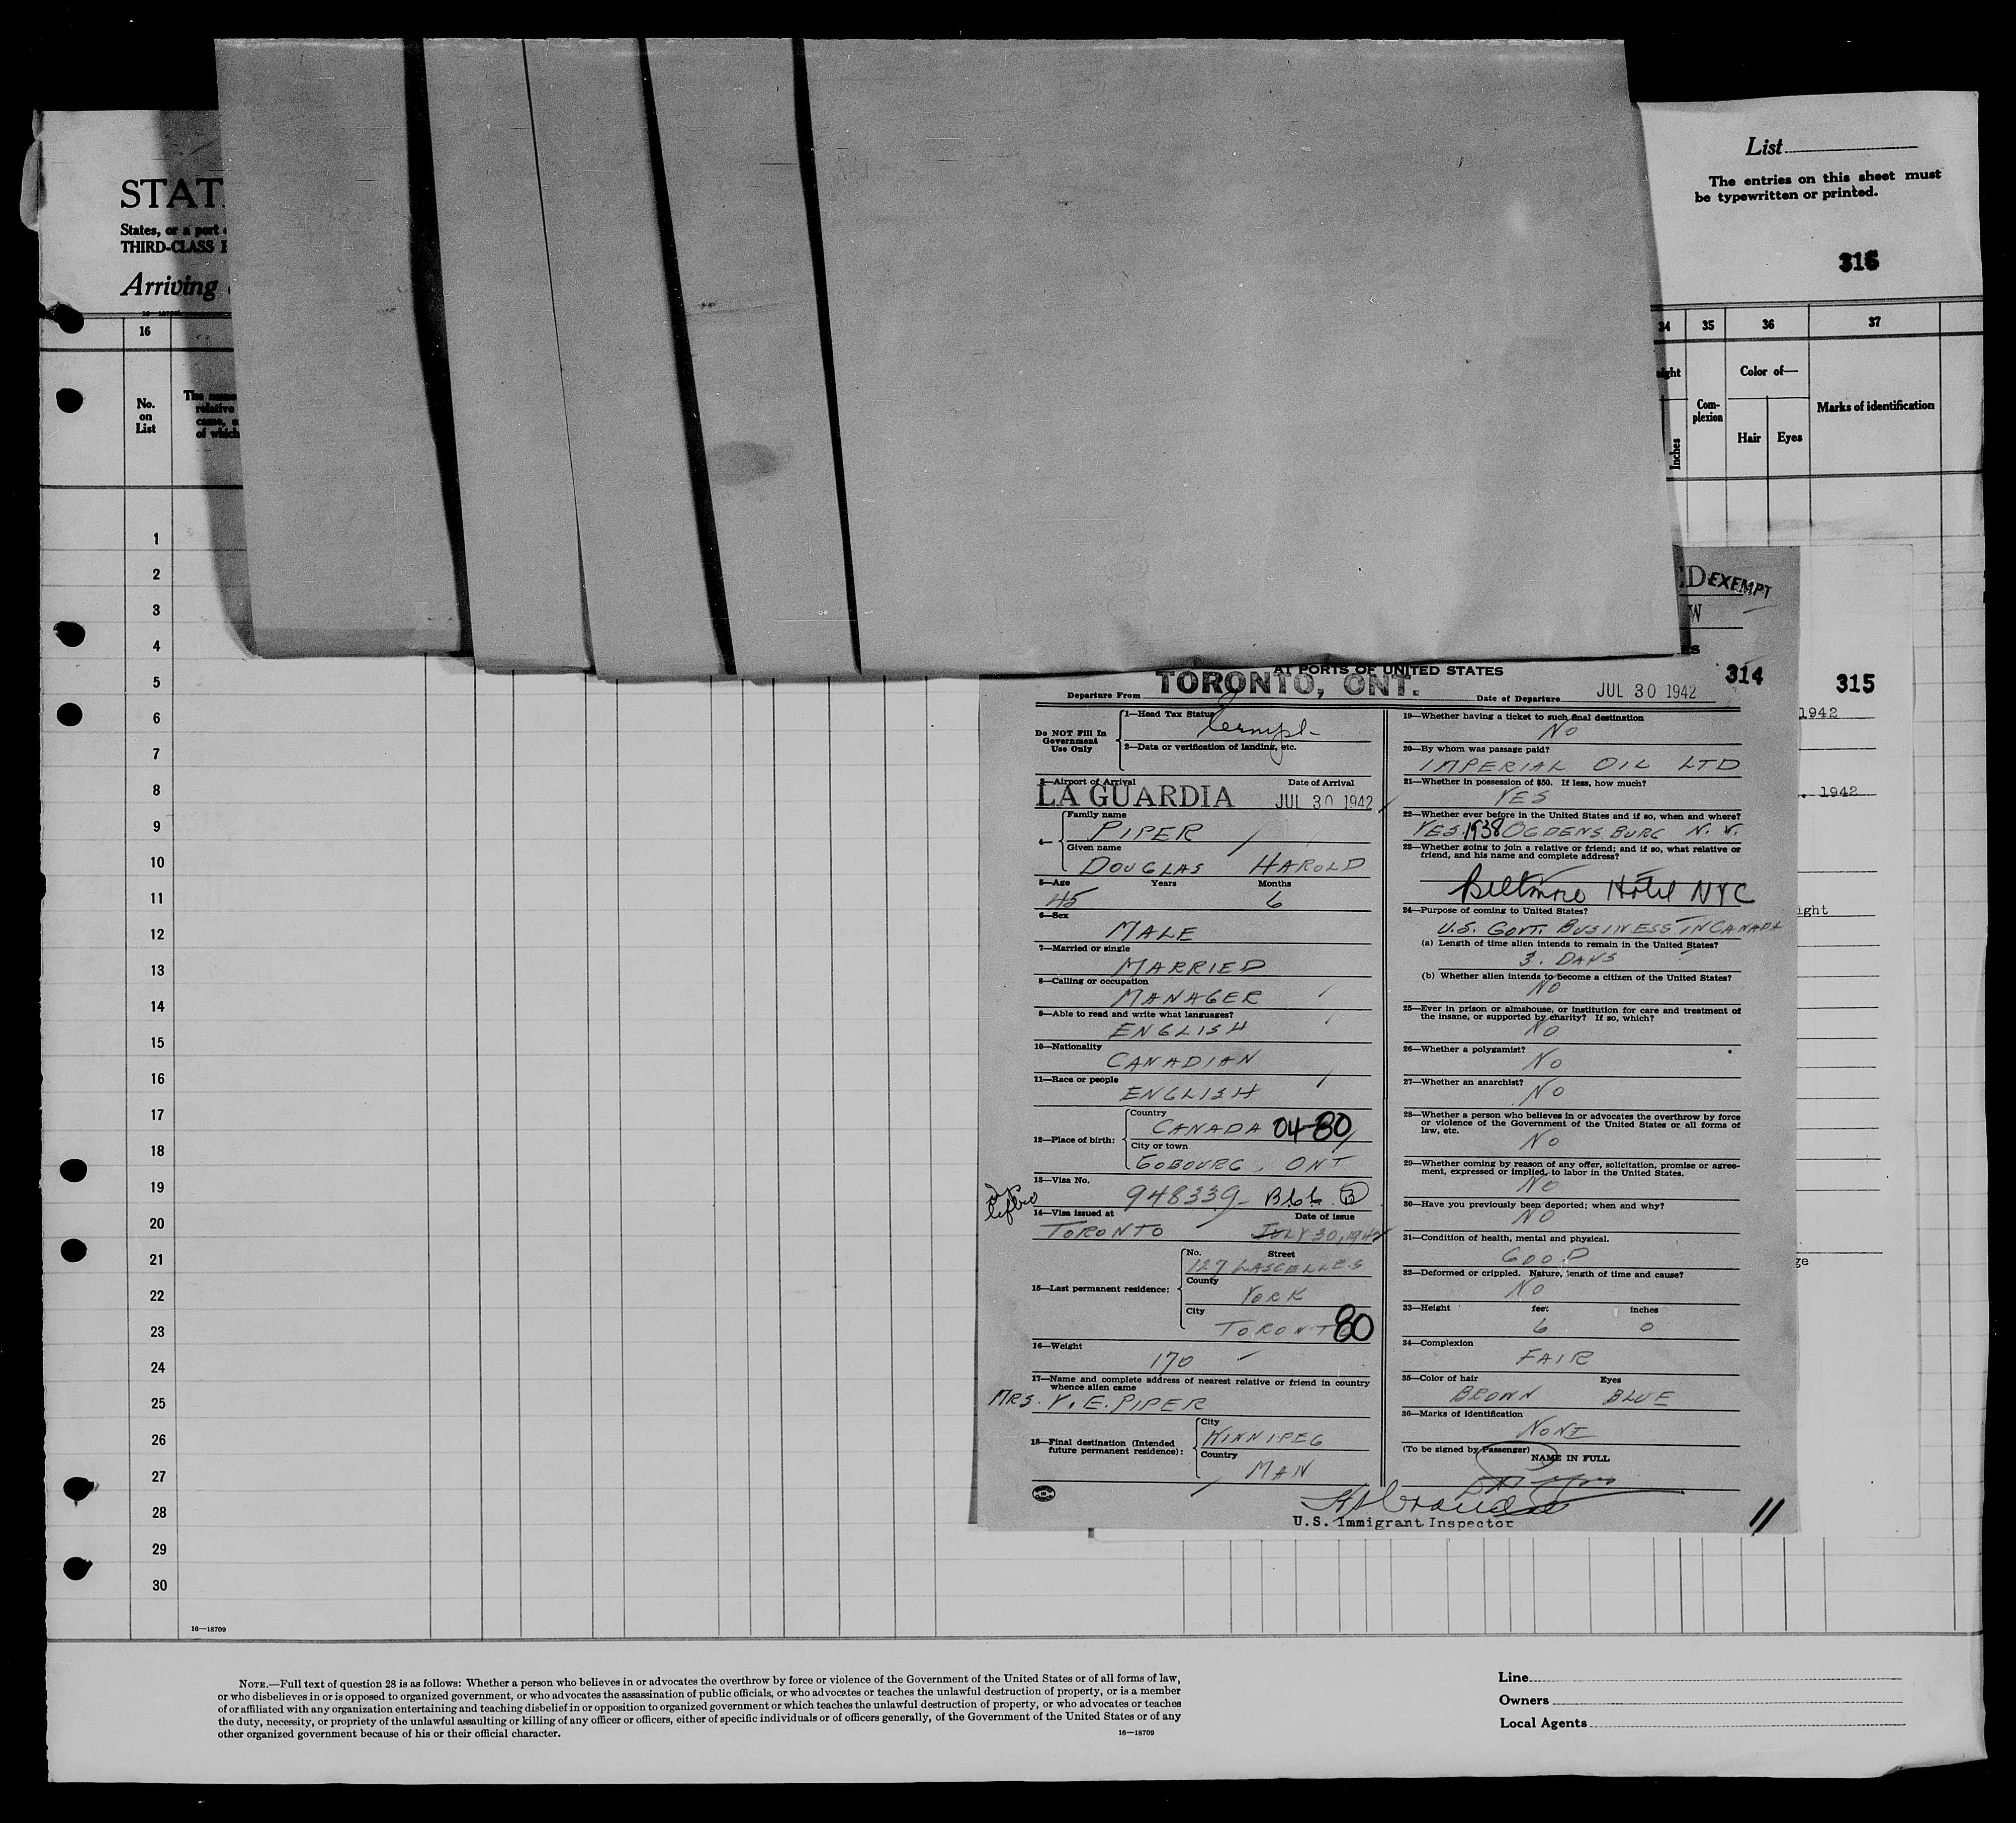 List
The entries on this sheet must
be typewritten or printed.
STAT
States, or a port
THIRD-CLASS
Arriving
316
16
34
35
36
37
No.
on
List
The name
relative
came,
of which
Inches
Com-
plexion
Color of—
Hair
Eyes
Marks of identification
1
2
3
4
5
6
7
8
9
10
11
12
13
14
15
16
17
18
19
20
21
22
23
24
25
26
27
28
29
30
16—18709
EXEMPT
314
315
1942
1942
AT PORTS OF UNITED STATES
Departure From TORONTO, ONT. Date of Departure JUL 30 1942
Do NOT Fill In
Government
Use Only
1—Head Tax Status
2—Data or verification of landing, etc.
3—Airport of Arrival Date of Arrival
LA GUARDIA JUL 30 1942
4— Family name
PIPER
Given name
DOUGLAS HAROLD
5—Age Years Months
45 6
6—Sex
MALE
7—Married or single
MARRIED
8—Calling or occupation
MANAGER
9—Able to read and write what languages?
ENGLISH
10—Nationality
CANADIAN
11—Race or people
ENGLISH
12—Place of birth:
Country
CANADA 04-80
City or town
COBOURG, ONT
13—Visa No.
948339
14—Visa issued at Date of issue
TORONTO JULY 30, 1942
15—Last permanent residence:
No. Street
127 LASCELLES
County
YORK
City
TORONTO 80
16—Weight
170
17—Name and complete address of nearest relative or friend in country
whence alien came
MRS. V. E. PIPER
18—Final destination (Intended
future permanent residence):
City
WINNIPEG
Country
MAN
19—Whether having a ticket to such final destination
NO
20—By whom was passage paid?
IMPERIAL OIL LTD
21—Whether in possession of $50. If less, how much?
YES
22—Whether ever before in the United States and if so, when and where?
YES. 1938 OGDENSBURG N. Y.
23—Whether going to join a relative or friend; and if so, what relative or
friend, and his name and complete address?
Biltmore Hotel NYC
24—Purpose of coming to United States?
U.S. GOVT. BUSINESS IN CANADA
(a) Length of time alien intends to remain in the United States?
3. DAYS
(b) Whether alien intends to become a citizen of the United States?
NO
25—Ever in prison or almshouse, or institution for care and treatment of
the insane, or supported by charity? If so, which?
NO
26—Whether a polygamist?
NO
27—Whether an anarchist?
NO
28—Whether a person who believes in or advocates the overthrow by force
or violence of the Government of the United States or all forms of
law, etc.
NO
29—Whether coming by reason of any offer, solicitation, promise or agree-
ment, expressed or implied, to labor in the United States.
NO
30—Have you previously been deported; when and why?
NO
31—Condition of health, mental and physical.
GOOD
32—Deformed or crippled. Nature, length of time and cause?
NO
33—Height feet inches
6 0
34—Complexion
FAIR
35—Color of hair Eyes
BROWN BLUE
36—Marks of identification
NONE
(To be signed by Passenger)
NAME IN FULL
U.S. Immigrant Inspector
11
NOTE.—Full text of question 28 is as follows: Whether a person who believes in or advocates the overthrow by force or violence of the Government of the United States or of all forms of law,
or who disbelieves in or is opposed to organized government, or who advocates the assassination of public officials, or who advocates or teaches the unlawful destruction of property, or is a member
of or affiliated with any organization entertaining and teaching disbelief in or opposition to organized government or which teaches the unlawful destruction of property, or who advocates or teaches
the duty, necessity, or propriety of the unlawful assaulting or killing of any officer or officers, either of specific individuals or of officers generally, of the Government of the United States or of any
other organized government because of his or their official character.
16—18709
Line
Owners
Local Agents